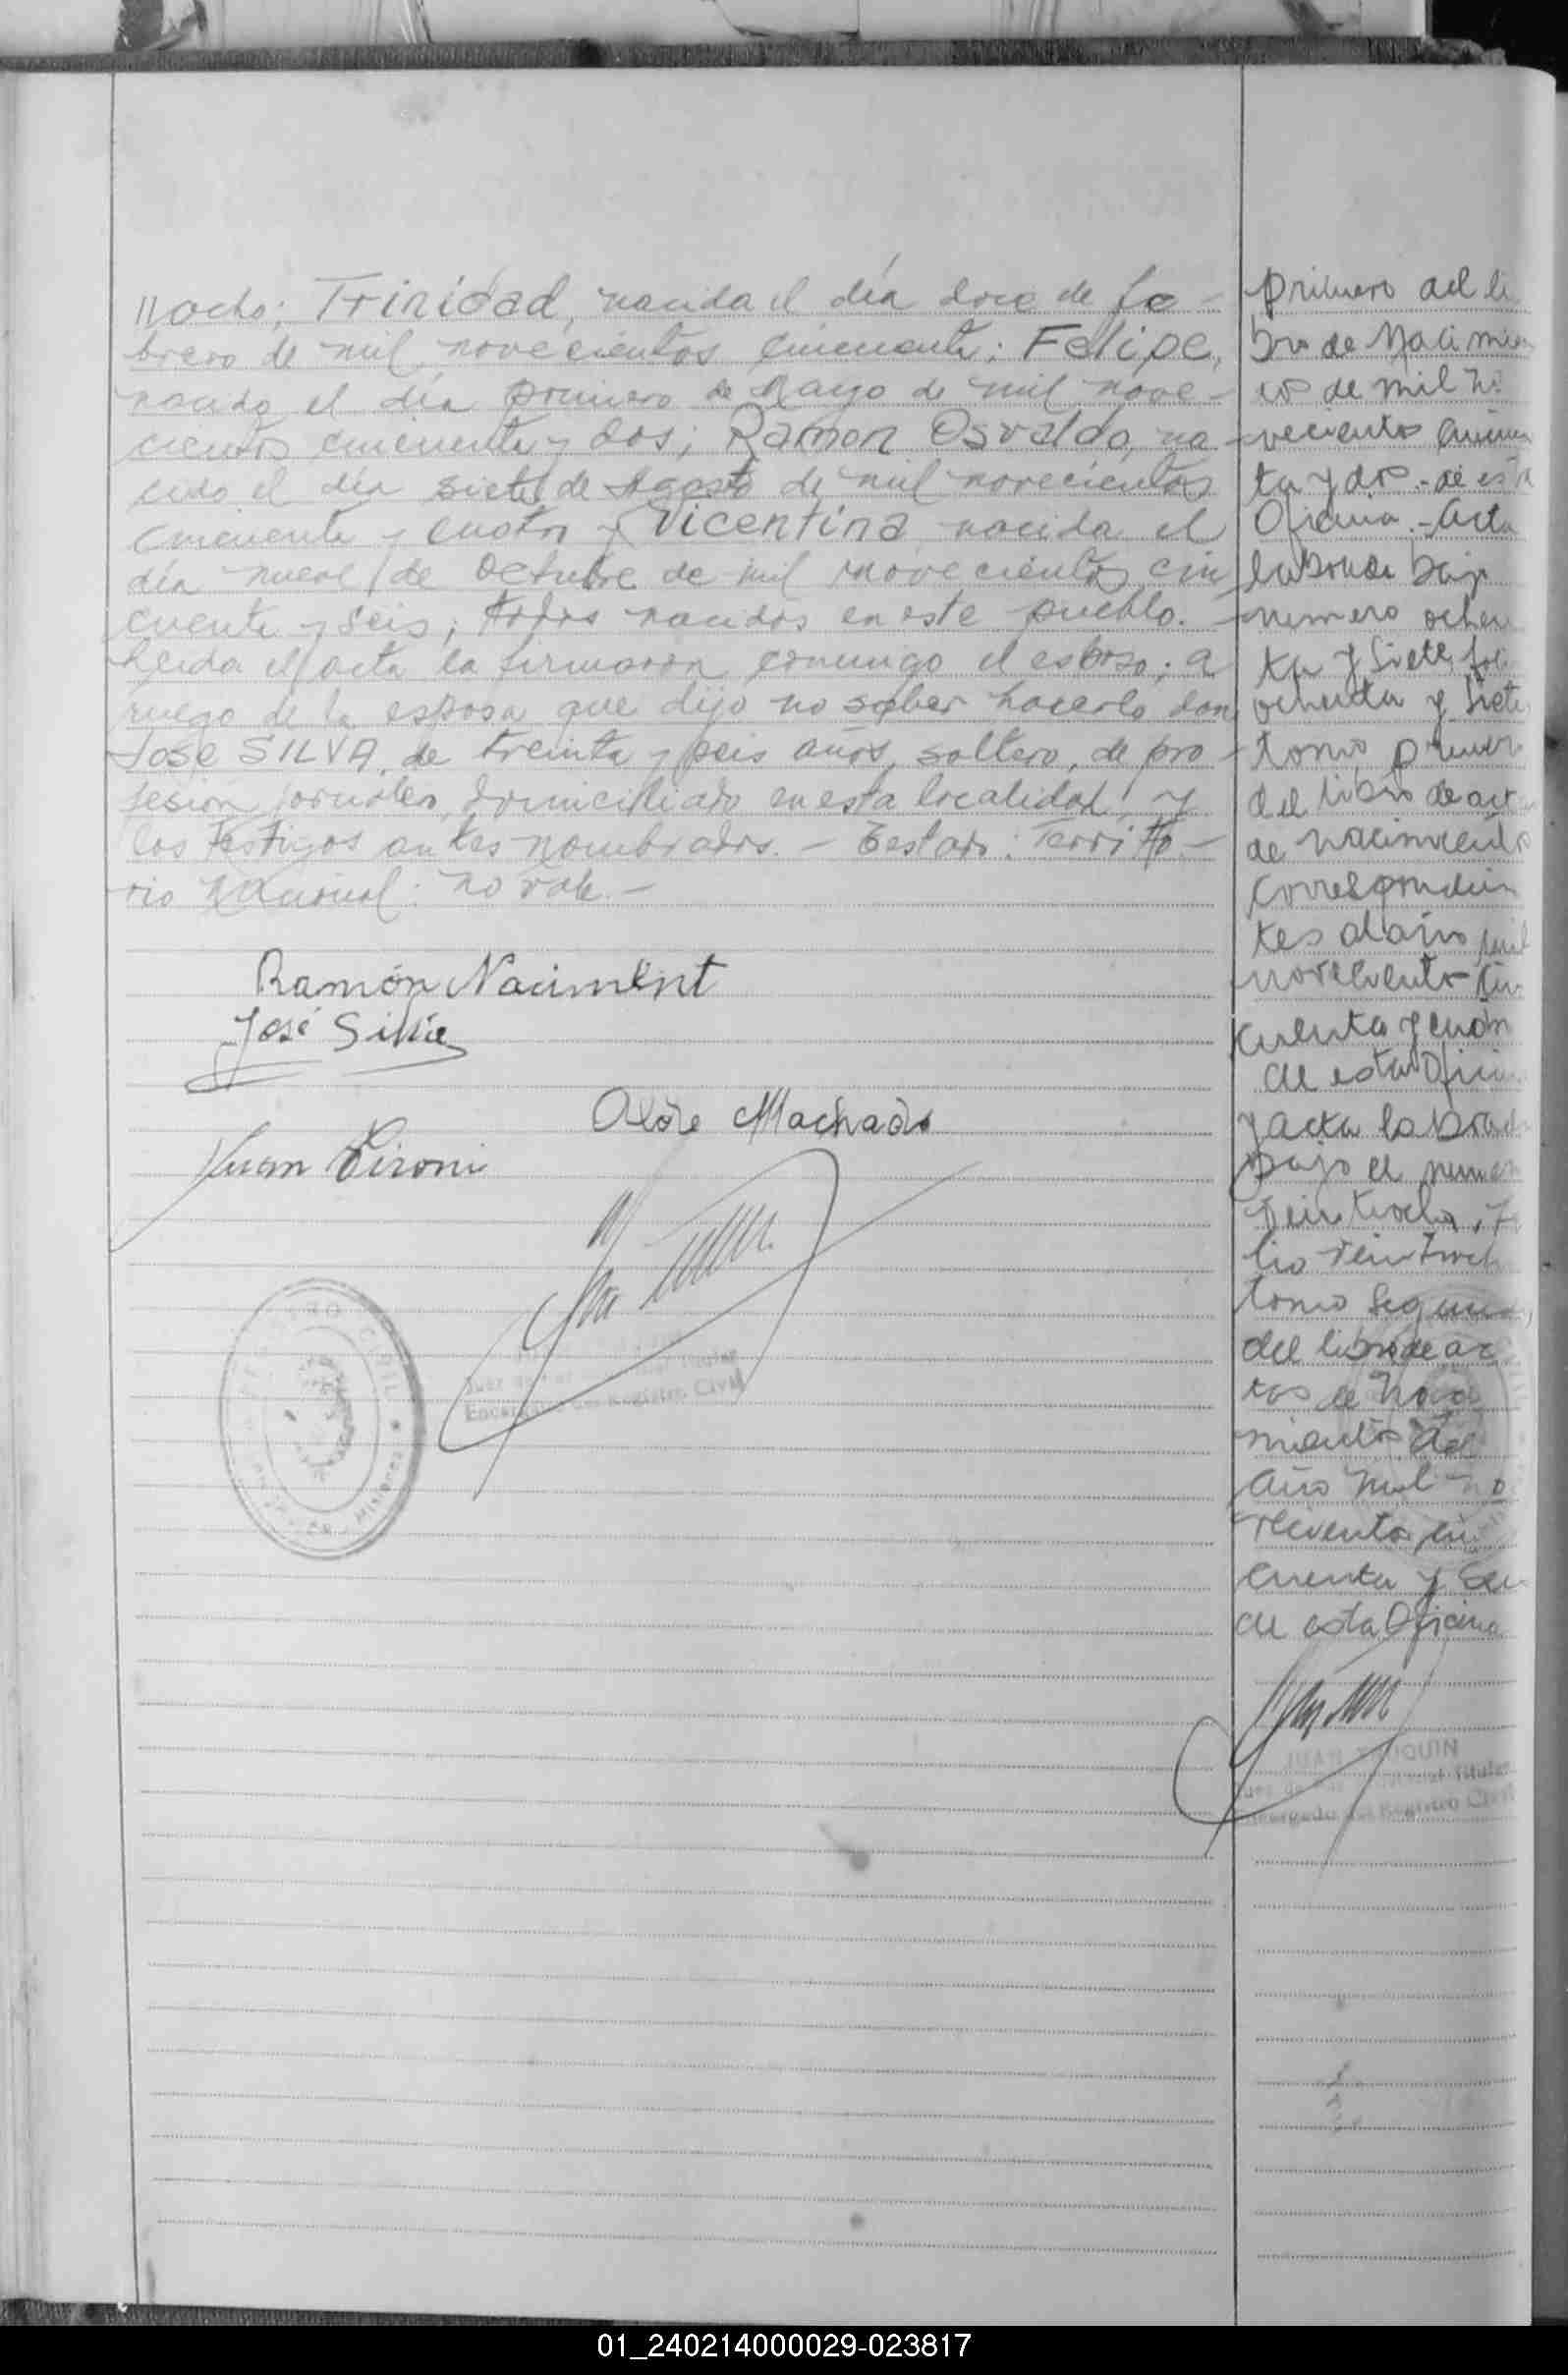 // ocho; Trinidad, nacida el día doce de fe-
brero de mil novecientos cincuenta; Felipe,
nacido el día primero de Mayo de mil nove-
cientos cincuenta y dos; Ramon Osvaldo, na-
cido el día siete de Agosto de mil novecientos
cincuenta y cuatro y Vicentina nacida el
día nueve de Octubre de mil novecientos cin
cuenta y seis; todos nacidos en este pueblo.-
Leida el acta la firmaron conmigo el esposo; a
ruego de la esposa que dijo no saber hacerlo don
José SILVA, de treinta y seis años, soltero, de pro-
fesión jornalero, domiciliado en esta localidad y
los testigos antes nombrados.- Testado: Territo-
rio Nacional: no vale.-
Ramón Naciment
José Silva
Machado
Juan
Encargado del Registro Civil
Misiones
primero del li
bro de Nacimien
tos de mil no
vecientos cincuen
ta y dos.- de esta
Oficina.- Acta
labrada bajo
numero ochen
ta y siete, fol
ochenta y siete
tomo primero
del libro de act
de nacimiento
correspondien
tes al año mil
novecientos cin
cuenta y cuatro
de esta Oficin
y acta labrad
bajo el numero
veintiocho, fo
lio veintioch
tomo segund
del libro de ac
tas de naci
mientos del
año mil no
vecientos cin
cuenta y seis
de esta Oficina
JUAN
Encargado del Registro Civil
01_240214000029-023817